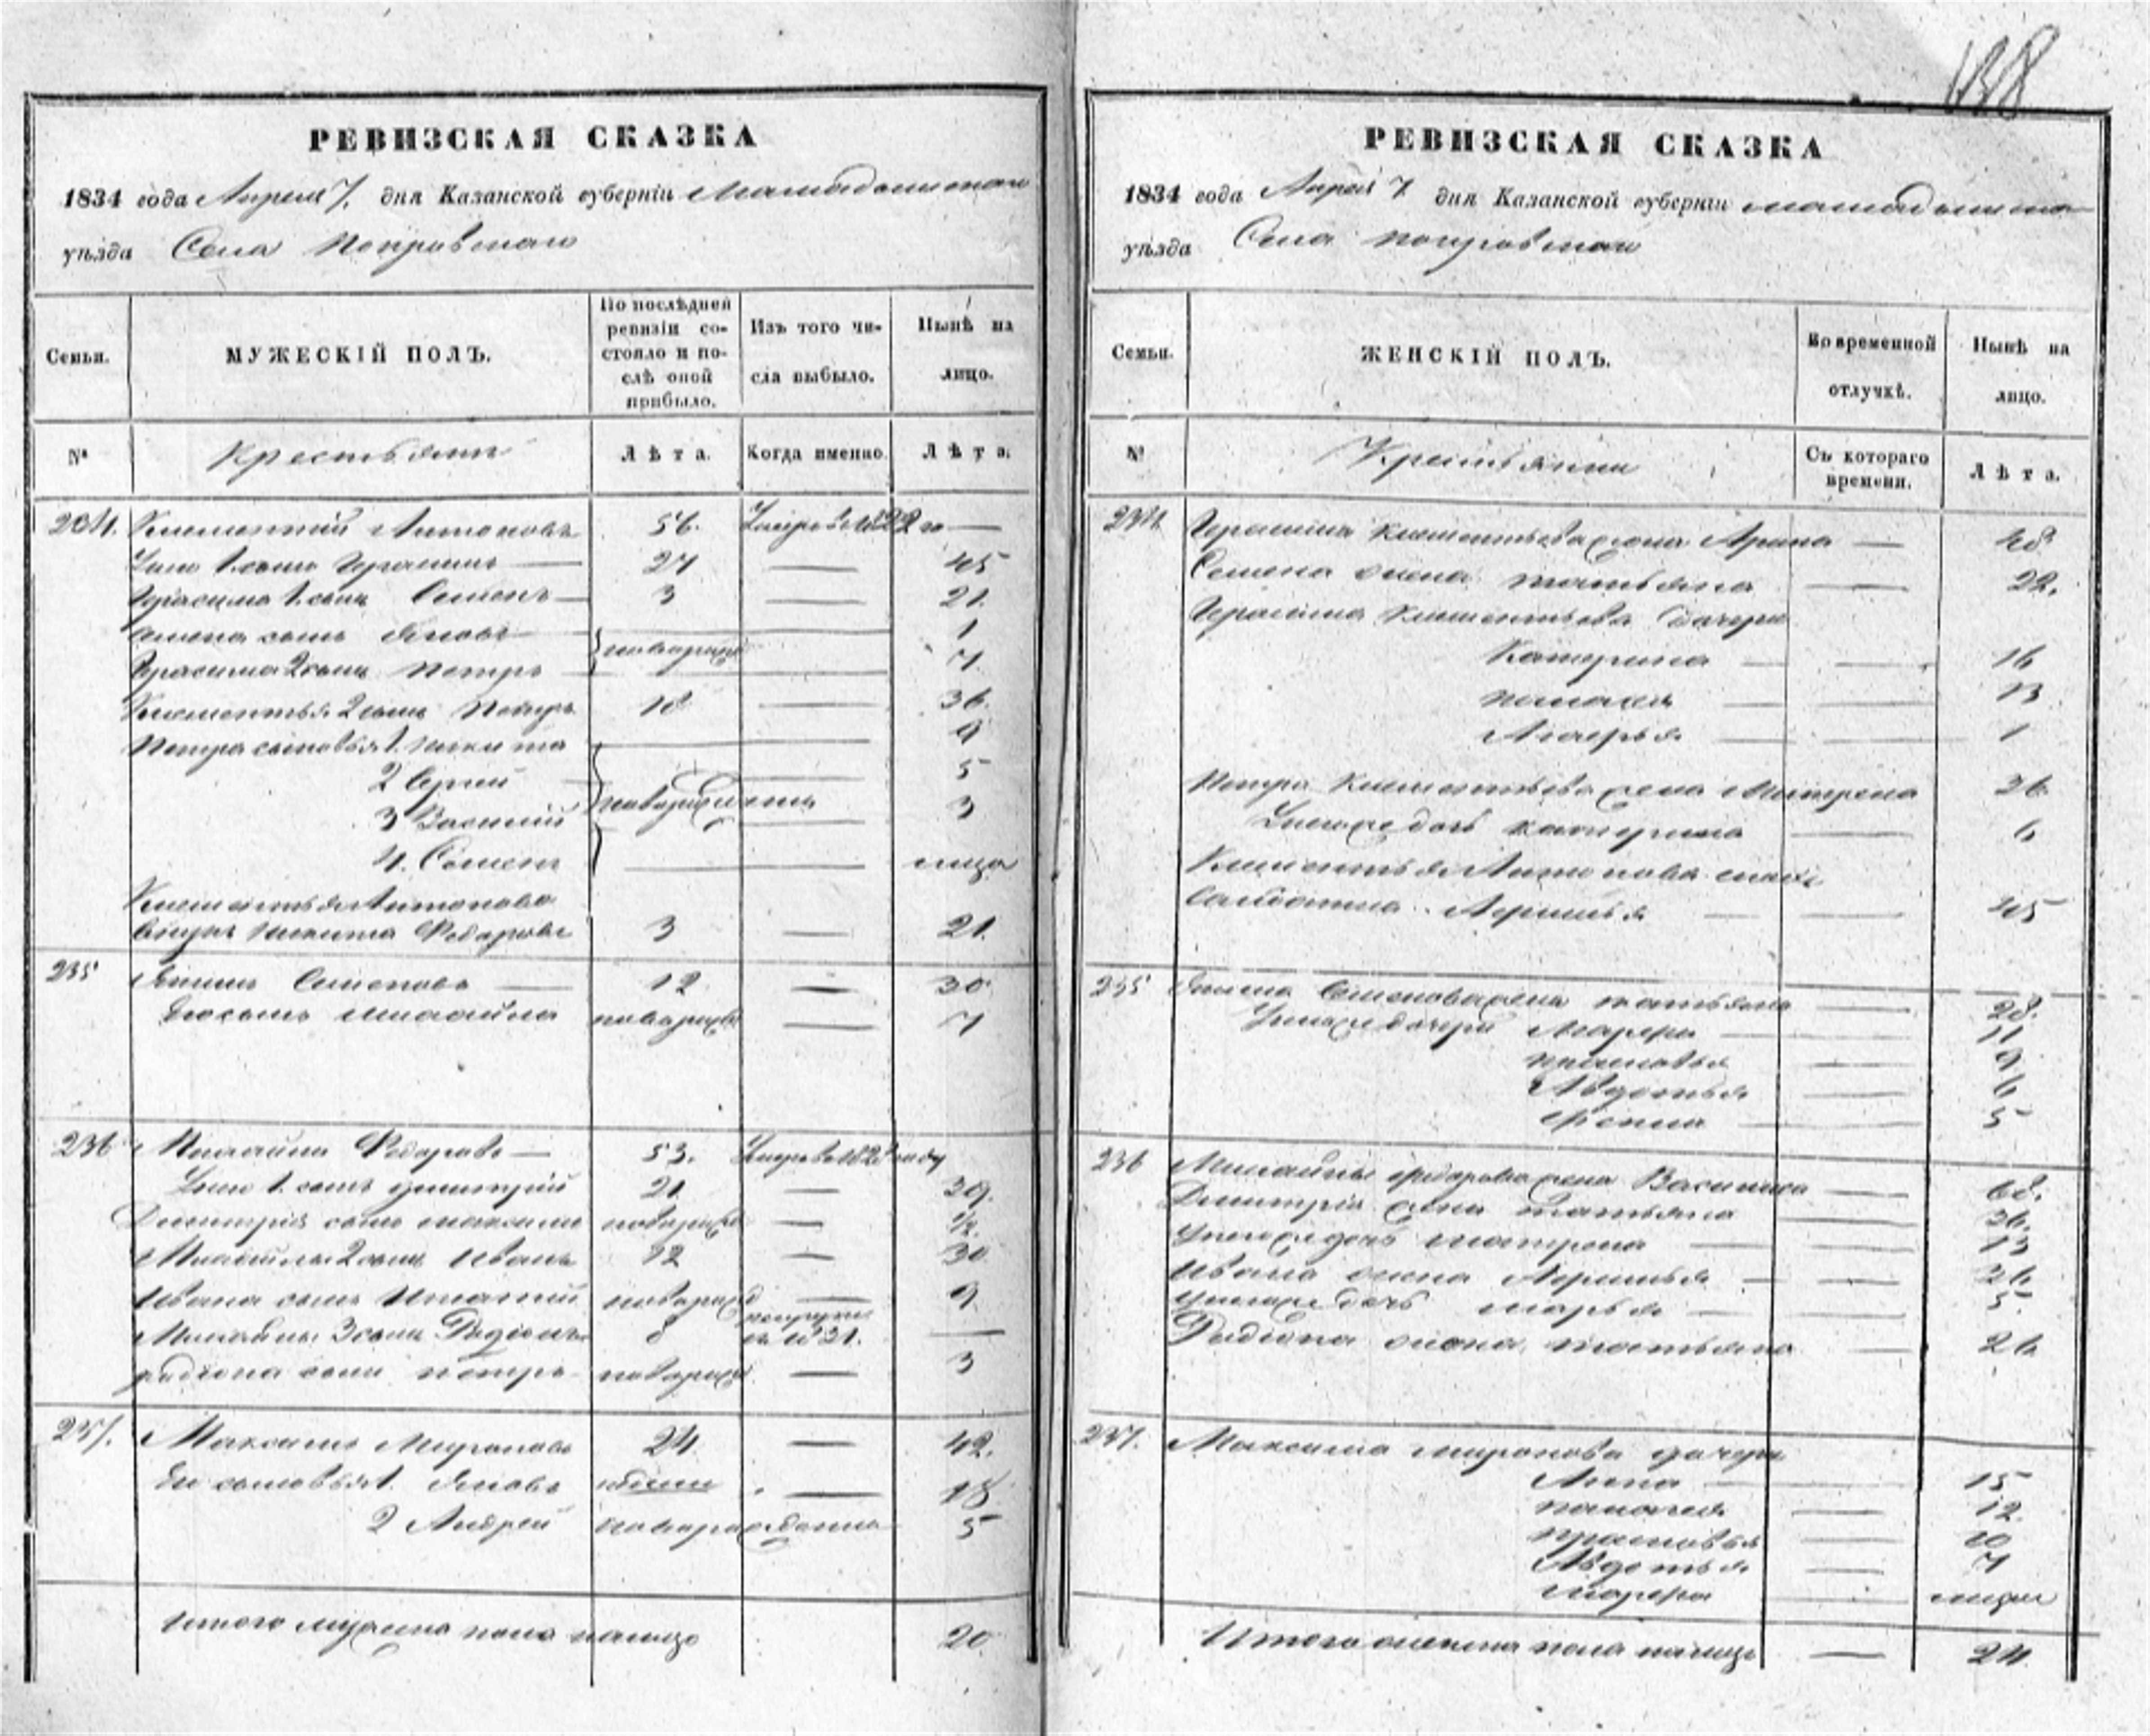 138
РЕВИЗСКАЯ СКАЗКА
1834 года Апреля 7. дня Казанской губерніи Мамадышскаго
уѣзда Села Покровскаго
Семьи.
МУЖЕСКІЙ ПОЛЪ.
По послѣдней ревизіи состояло и послѣ оной прибыло.
Изъ того числа выбыло.
Нынѣ на лицо.
№ Крестьянъ Лѣта. Когда именно. Лѣта.
234. Климентий Антоновъ 56. Умеръ в 1822 го —
Ево 1. сынъ Герасимъ — 27 — 45
Герасима 1. сынъ Семенъ — 3 — 21.
Семена сынъ Яковъ — 1
новорожд
Герасима 2 сынъ Петръ — 7.
Климентья 2 сынъ Петръ 18 — 36.
Петра сыновья 1. Никита — 9
2 Сергей — 5
новорожденны
3 Василий — 3
4. Семенъ —
Климентья Антонова
внукъ Никита Федоровъ 3 — 21.
235 Якимъ Семеновъ — 12 — 30
Ево сынъ Михайла новорожд — 7
236 Михайла Федоровъ — 53. Умеръ в 1828 году
Ево 1. сынъ Дмитрий 21. — 39.
Дмитрия сынъ Максимъ новорожд — 1/2.
Михайлы 2 сынъ Иванъ 12 — 30
Ивана сынъ Игнатий новорожд — 9.
Михайлы 3 сынъ Родионъ 8 в рекруты въ 1831. —
Родиона сынъ Петръ новорожд — 3
237. Максимъ Мироновъ 24 — 42.
Ево сыновья 1. Яковъ — 18
2 Андрей новорожденна 5
Итого мужеска пола налицо 20
РЕВИЗСКАЯ СКАЗКА
1834 года Апреля 7 дня Казанской губерніи Мамадышска
уѣзда Села Покровскаго
Семьи.
ЖЕНСКІЙ ПОЛЪ.
Во временной отлучкѣ.
Нынѣ на лицо.
№ Крестьянки Съ котораго времени. Лѣта.
234. Герасима Климентьева жена Арина — 48
Семена жена Татьяна — 22.
Герасима Климентьева дочери
Катерина — — 16
Палагея — — 13
— — 1
Петра Климентьева жена Матрена 36
У них же дочь Катерина — 6
Климентья Антонова
Афимья — — 45
235 Якима Семенова жена Татьяна — 28.
У них же дочери Марфа — — 11
Прасковья — 9
Авдотья — 6
Фекла — 5
236 Михайлы Федорова жена Василиса — 68.
Дмитрия жена Татьяна — 36.
У них же дочь Матрена — — 13
Ивана жена Афимья — — 26
У них же дочь Марья — — 5.
Родиона жена Татьяна — 26
237. Максима Миронова дочери
Анна — 15
Палагея — 12.
Прасковья — 10
Авдотья — 7
Марфа —
Итого женска пола налицо — 24